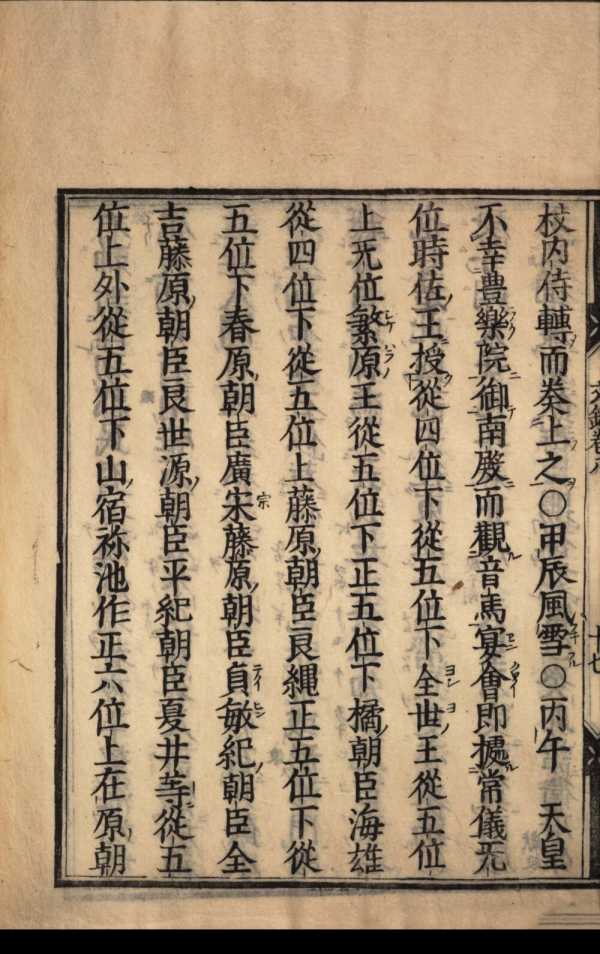 杖内侍轉而奏上之○甲辰風雪○丙午　天皇
不幸豊樂院御南殿而觀音馬宴會即據常儀无
位時佐王授從四位下從五位下全世王從五位
上无位繁原王從五位下正五位下橘朝臣海雄
從四位下從五位上藤原朝臣良縄正五位下從
五位下春原朝臣廣宋宗藤原朝臣貞敏紀朝臣全
吉藤原朝臣良世源朝臣平紀朝臣夏井等從五
位上外從五位下山宿祢池作正六位上在原朝